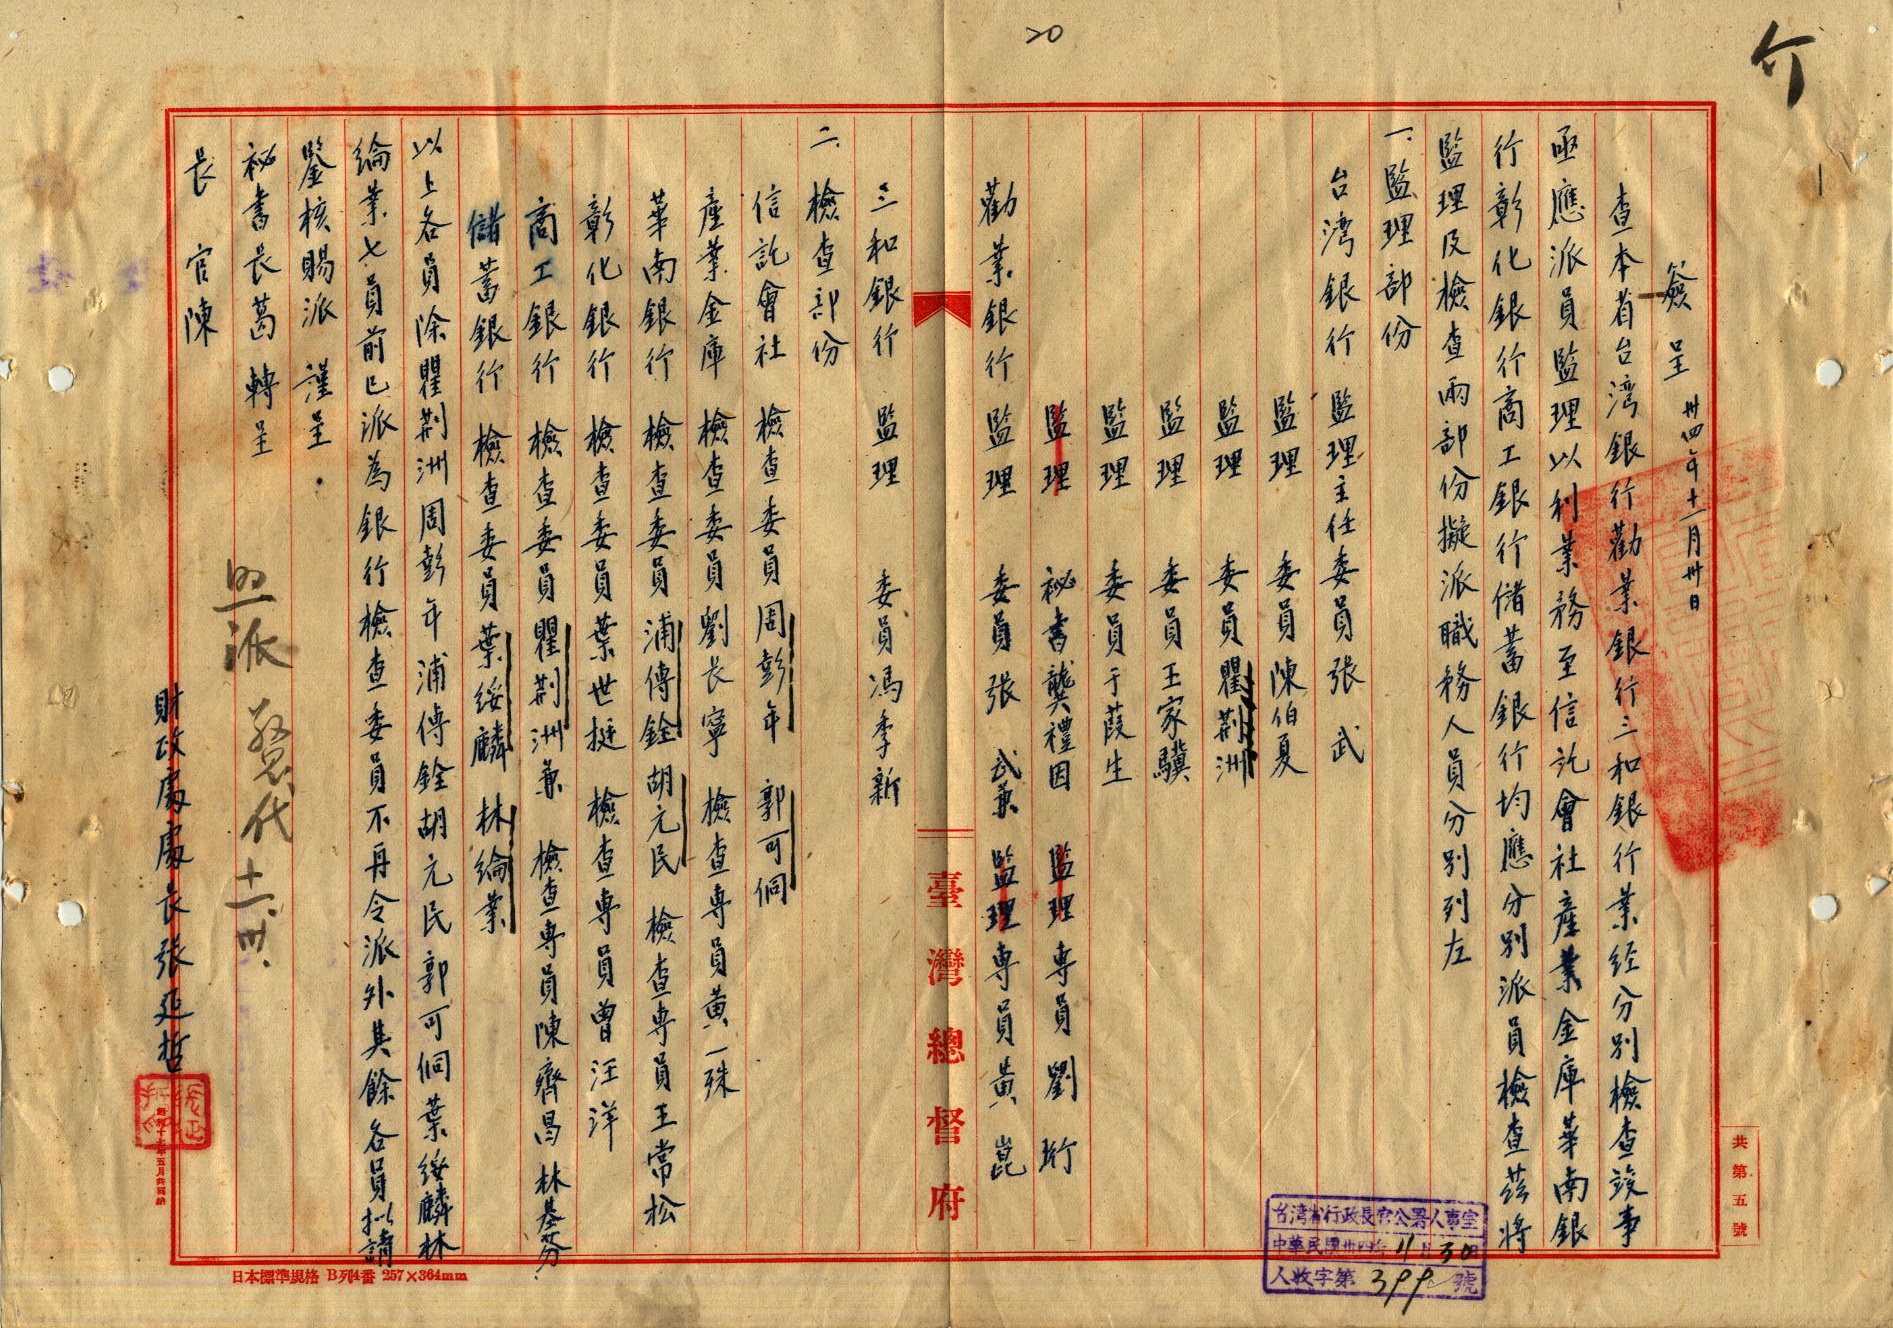 20
簽呈 卅四年十一月卅日
查本省台湾銀行勸業銀行三和銀行業経分別檢查竣事
亟應派員監理以利業務至信託會社産業金庫華南銀
行彰化銀行商工銀行儲蓄銀行均應分別派員檢查茲將
監理及檢查兩部份擬派職務人員分別列左
一.監理部份
台湾銀行 監理主任委員 張 武
監理 委員 陳伯夏
監理 委員 瞿荆洲
監理 委員 王家驥
監理 委員 于葭生
監理 秘書 龔禮因 監理專員 劉 珩
勸業銀行 監理 委員 張 武兼 監理專員 黄 崑
臺灣總督府
三和銀行 監理 委員 馮季新
二.檢查部份
信託會社 檢查委員 周彭年 郭可侗
産業金庫 檢查委員 劉長寧 檢查專員 黄一殊
華南銀行 檢查委員 浦傳銓 胡元民 檢查專員 王常松
彰化銀行 檢查委員 葉世挺 檢查專員 曾汪洋
商工銀行 檢查委員 瞿荆洲兼 檢查專員 陳齊昌 林基芬
儲蓄銀行 檢查委員 葉綏麟 林綸業
以上各員除瞿荆洲周彭年浦傳銓胡元民郭可侗葉綏麟林
綸業七員前已派為銀行檢查委員不再令派外其餘各員拟請
鑒核賜派 謹呈
秘書長葛 轉呈
長 官 陳
照派 代 十一.卅.
財政處處長張延哲
共第五號
台湾省行政長官公署人事室
中華民國卅四年11月30日
人收字第 號
日本標準規格 B列4番 257×364mm